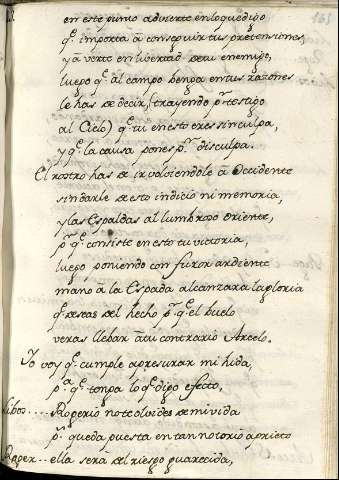 en este punto advierte en lo que digo
q.e importa â conseguir tus pretensiones,
y â verte en libertad de tu enemigo,
luego q.e al campo benga en tus razones
le has de decir, (trayendo p.r testigo
al Cielo) q.e tu en esto eres sin culpa,
y q.e la causa pones p.r disculpa.
El rostro has de ir volviendole a Occidente
sin darle de esto indicio ni memoria,
y las Espaldas al lumbroso oriente,
p.r q.e consiste en esto tu victoria,
luego poniendo con furor ardiente
mano â la Espada alcanzara la gloria
q.e restas del hecho p.r q.e el buelo
veras llebar â tu contrario Arcelo.
Io voy q.e cumple apresurar mi hida,
p.a q.e tenga lo q.e digo efecto,
Rogerio no te olvides de mi vida
p.s queda puesta en tan notorio aprieto
Roger... ella será del riesgo guarecida,